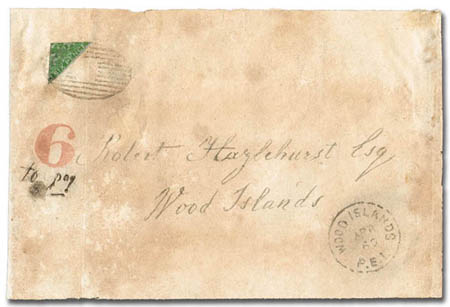 6
to pay
Robert Hazlehurst Esq
Wood Islands
WOOD ISLANDS
P.E.I.